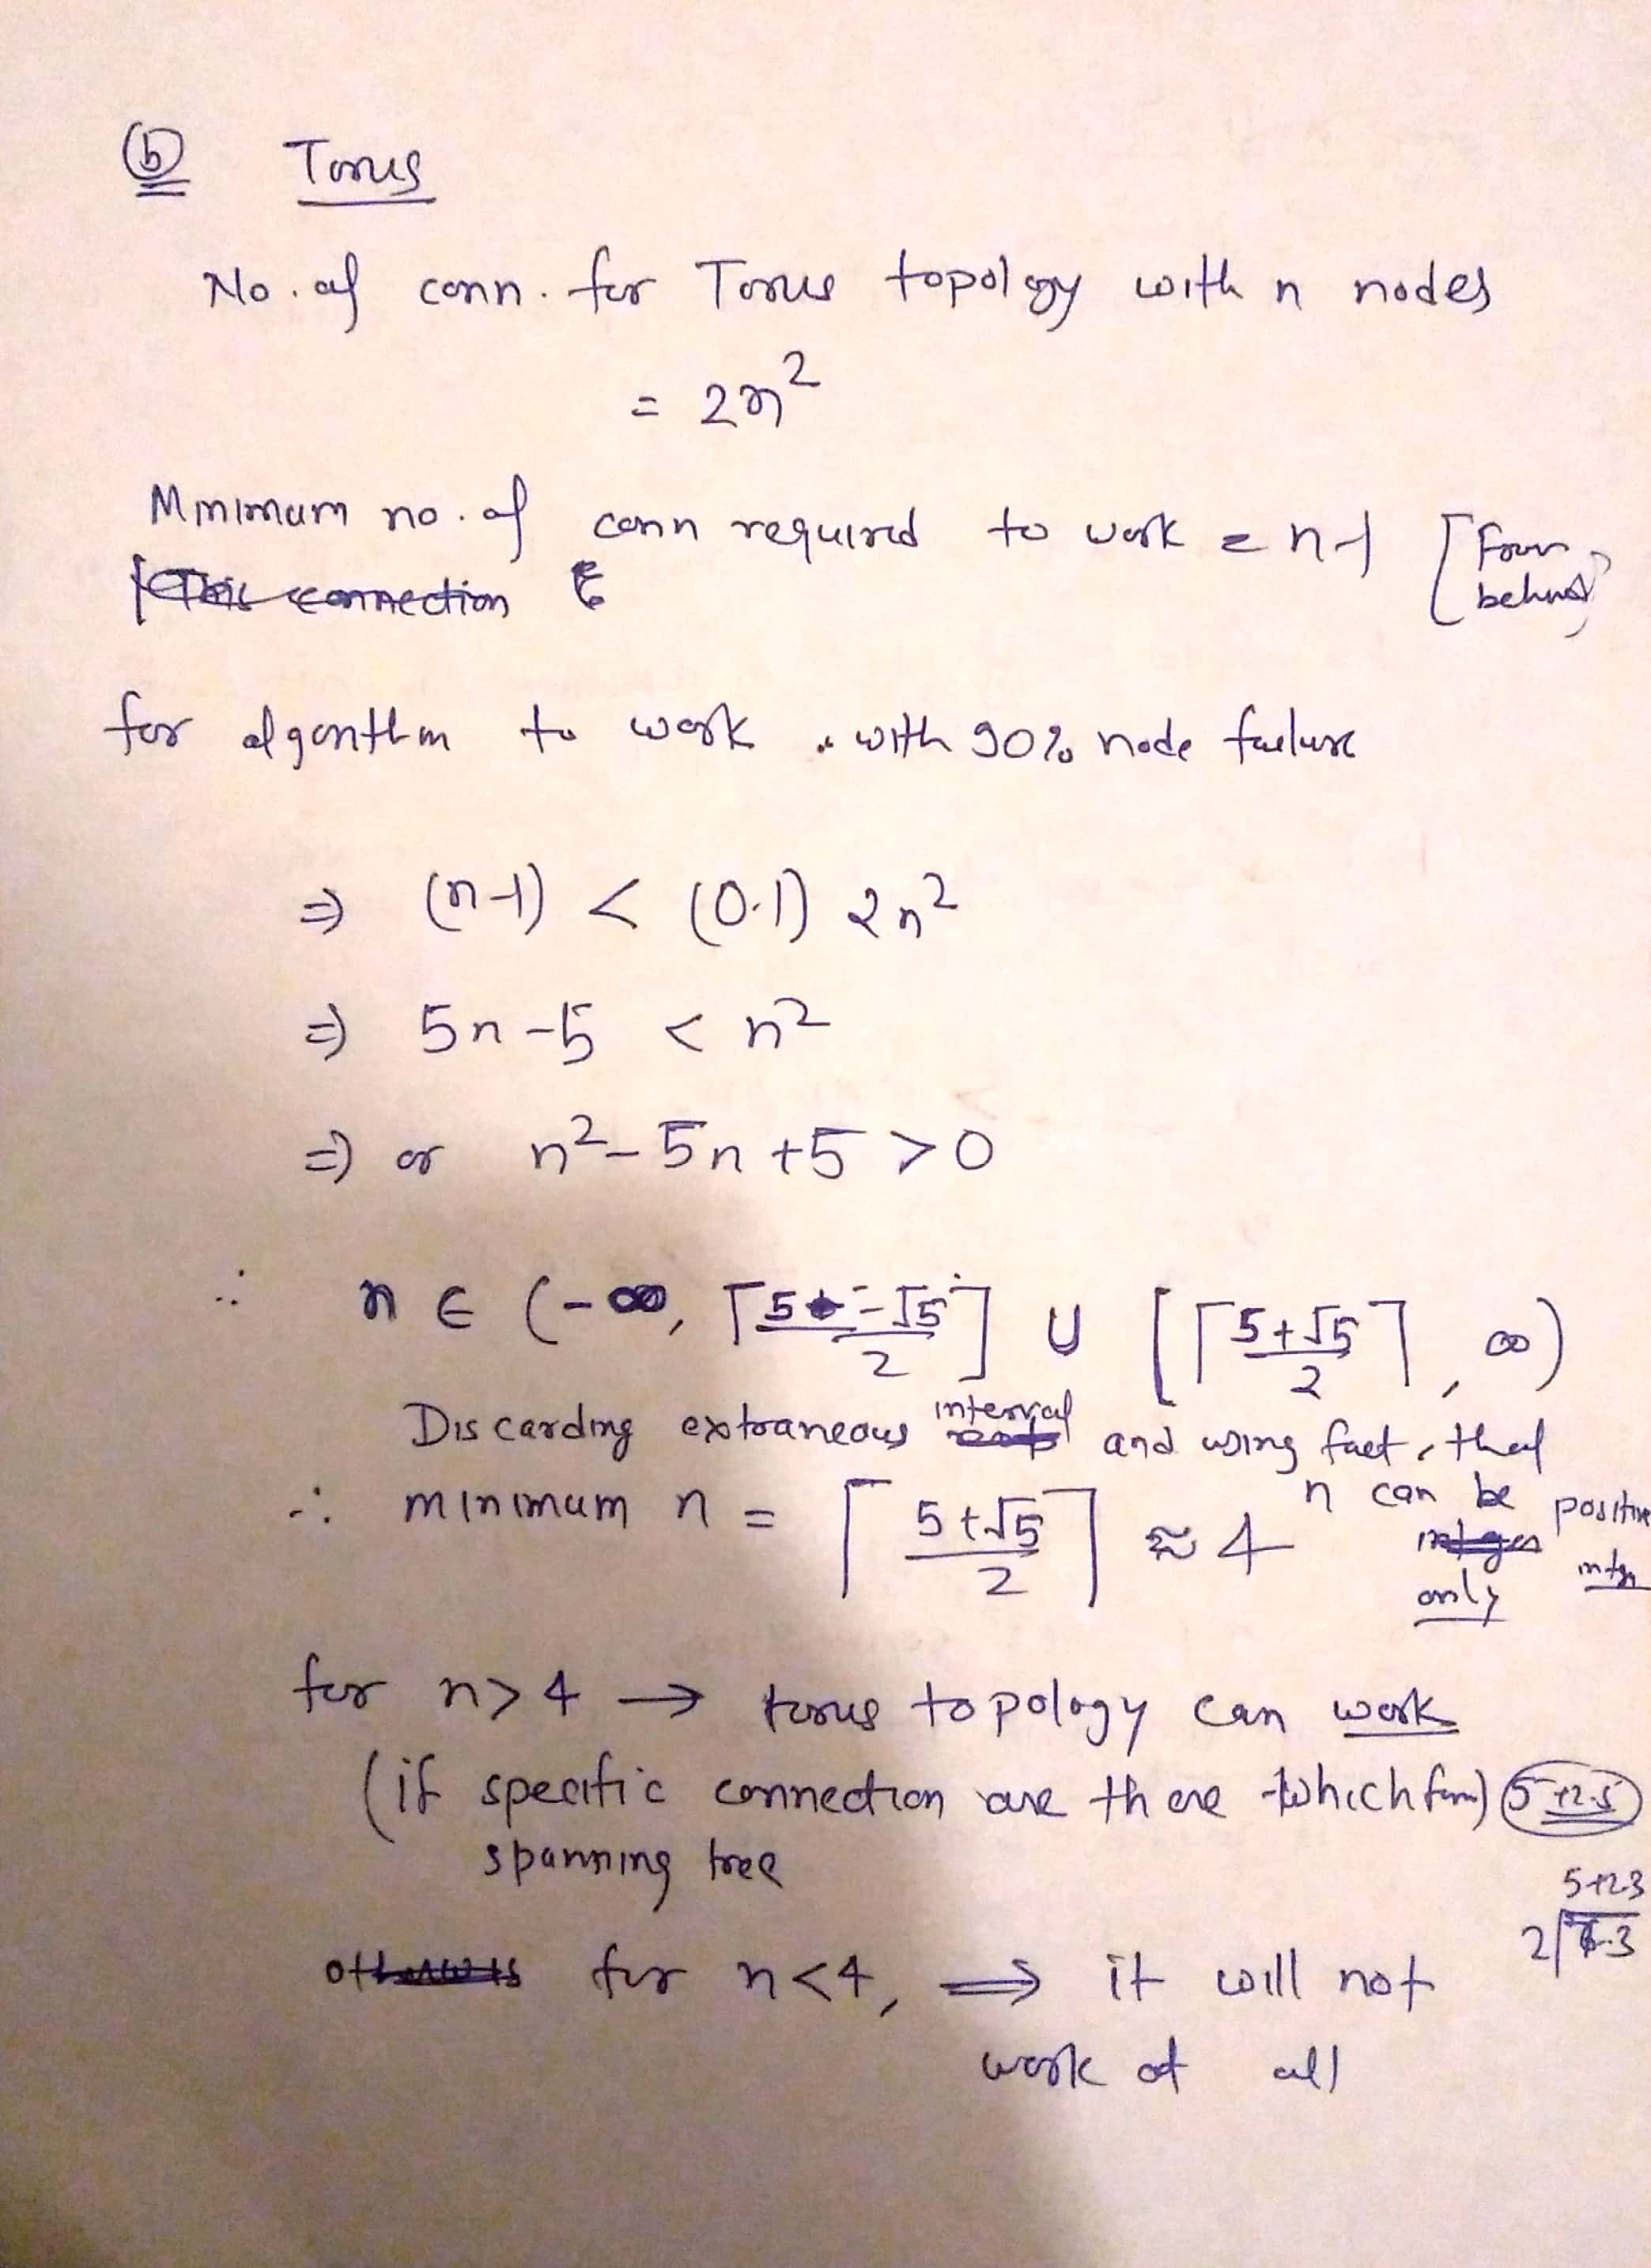 (b) Torus
No. of conn. for Torus topology with n nodes
= 2n²
Minimum no. of conn required to work = n-1 [From behind]
for algorithm to work with 90% node failure
⇒ (n-1) < (0.1) 2n²
⇒ 5n-5 < n²
⇒ or n²-5n+5 >0
∴ n ∈ (-∞, ⌈(5-√5)/2⌉] ∪ [⌈(5+√5)/2⌉, ∞)
Discarding extraneous interval and using fact, that
n can be positive
∴ minimum n = ⌈(5+√5)/2⌉ ≈ 4
only
for n>4 → torus topology can work
(if specific connection are there which form) 5+2.5
spanning tree
5+2.3
for n<4, ⇒ it will not
work at all